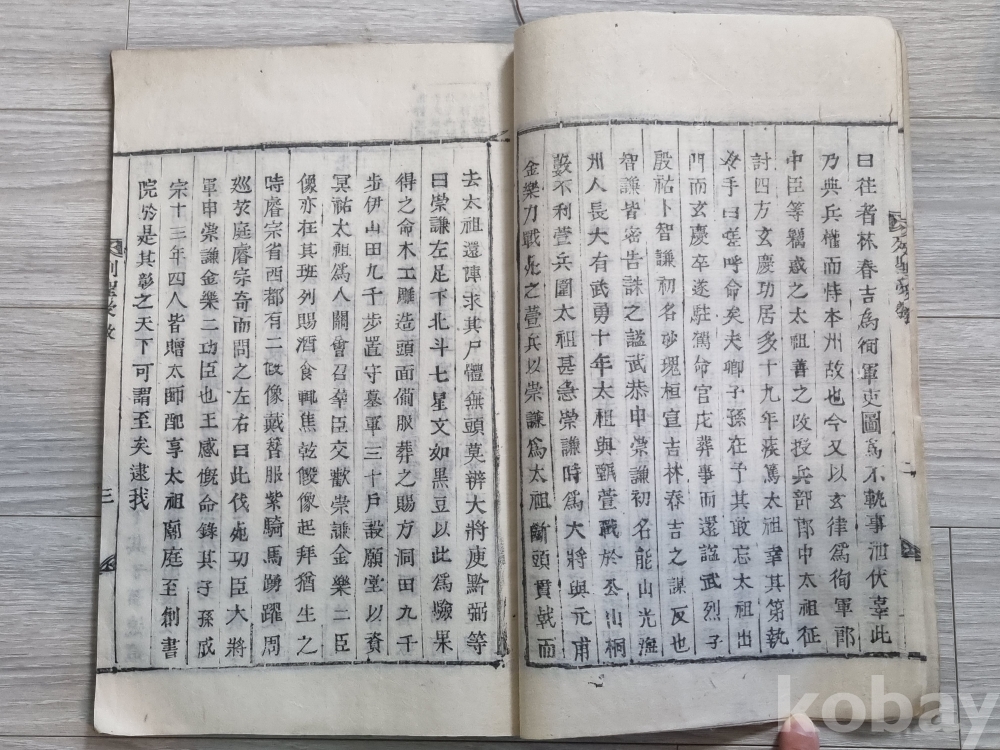 曰往者林春吉爲徇軍吏圖爲不軌事泄伏辜此
乃典兵權而恃本州故也今又以玄律爲徇軍郎
中臣等竊惑之太祖善之改授兵部郎中太祖征
討四方玄慶功居多十九年疾篤太祖幸其第執
手曰嗟呼命矣夫卿子孫在予其敢忘太祖出
門而玄慶卒遂駐駕命官庀葬事而還諡武烈子
殷祐卜智謙初名砂瑰桓宣吉林春吉之謀反也
智謙皆密告誅之諡武恭申崇謙初名能山光海
州人長大有武勇十年太祖與甄萱戰於公山桐
藪不利萱兵圍太祖甚急崇謙時爲大將與元甫
金樂力戰死之萱兵以崇謙爲太祖斷頭貫戟而
去太祖還陣求其尸體無頭莫辨大將庾黔弼等
曰崇謙左足下北斗七星文如黑豆以此爲驗果
得之命木工雕造頭面備服葬之賜方洞田九千
步伊山田九千步置守墓軍三十戶設願堂以資
冥祐太祖爲八關會召羣臣交歡崇謙金樂二臣
像亦在其班列賜酒食輒焦乾假像起拜猶生之
時睿宗省西都有二假像戴簪服紫騎馬踴躍周
巡於庭睿宗奇而問之左右曰此伐死功臣大將
軍申崇謙金樂二功臣也王感慨命錄其子孫成
宗十三年四人皆贈太師配享太祖廟庭至創書
院於是其彰之天下可謂至矣逮我
二
三
kobay